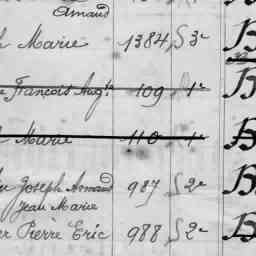 Armand
Marie 1384 S 3e B
François Augte 109 1e B
Marie 110 1e B
Joseph Armand 987 S 2e B
Jean Marie
Pierre Eric 988 S 2e B